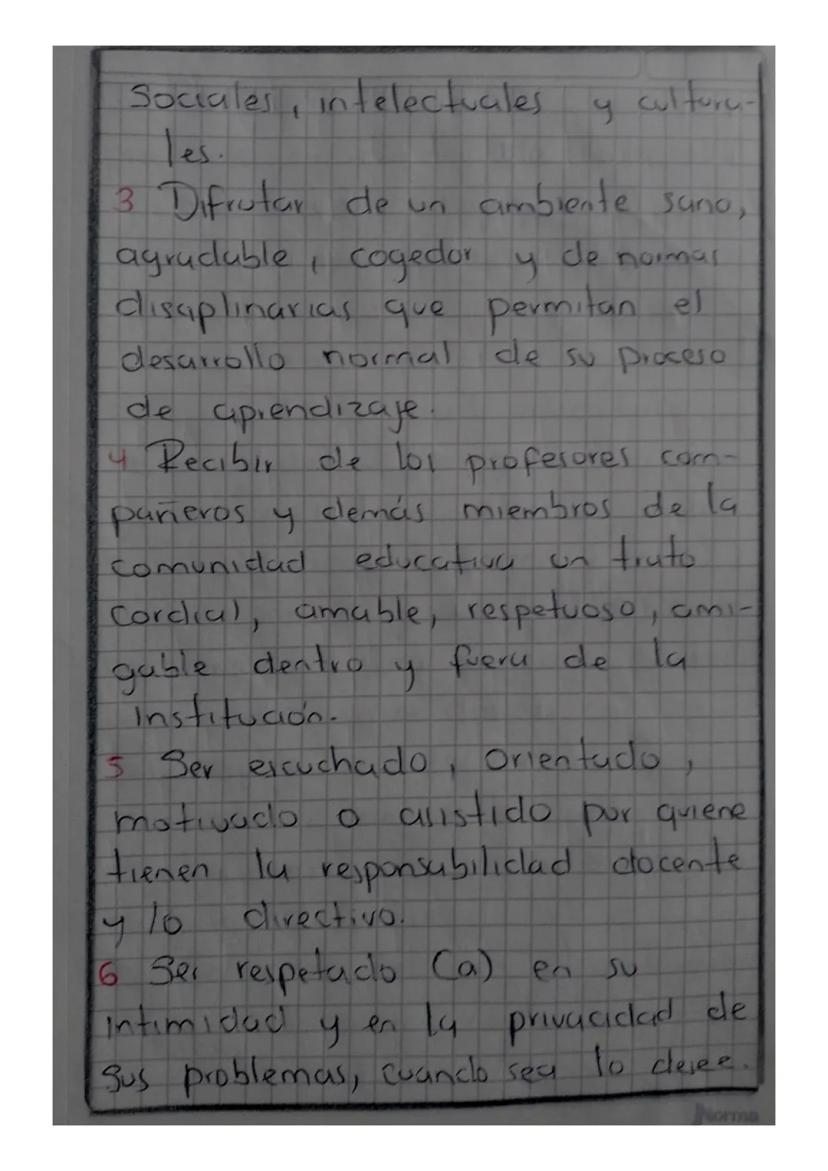 Sociales, intelectuales y cultura-
les.
3 Difrutar de un ambiente sano,
agradable, cogedor y de normas
disciplinarias que permitan el
desarrollo normal de su proceso
de aprendizaje.
4 Recibir de los profesores com-
pañeros y demás miembros de la
comunidad educativa un trato
cordial, amable, respetuoso, ami-
gable dentro y fuera de la
institución.
5 Ser escuchado, orientado,
motivado o asistido por quiene
tienen la responsabilidad docente
y lo directivo.
6 Ser respetado (a) en su
intimidad y en la privacidad de
sus problemas, cuando sea lo desee.
Norma